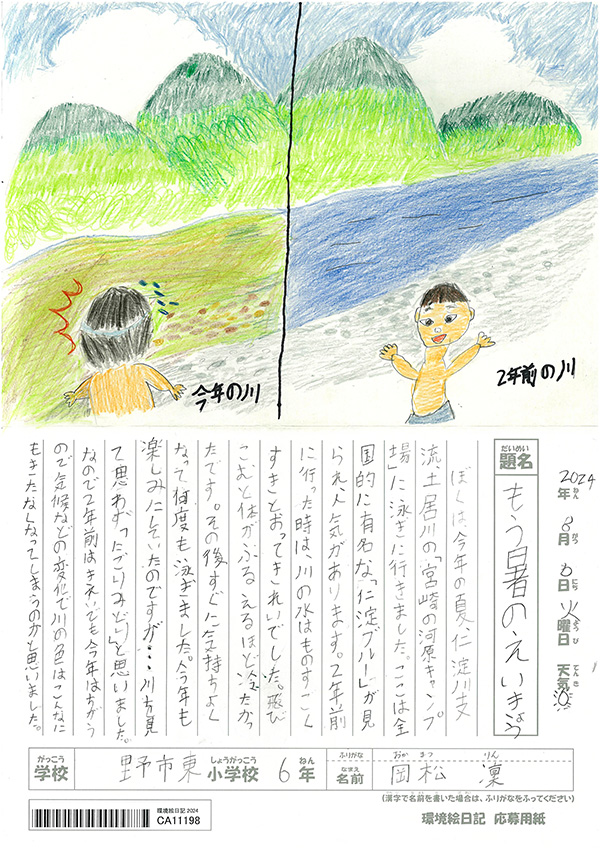 今年の川
2年前の川
2024
年
8
月
6
日
火
曜日
天気
だいめい
題名
もう暑のえいきょう
ぼくは、今年の夏、仁淀川支
流、土居川の「宮崎の河原キャンプ
場」に泳ぎに行きました。ここは全
国的に有名な「仁淀ブルー」が見
られ、人気があります。2年前
に行った時は、川の水はものすごく
すきとおってきれいでした。飛び
こむと体がふるえるほど冷たかっ
たです。その後すぐに気持ちよく
なって何度も泳ぎました。今年も
楽しみにしていたのですが…川を見
て思わず「にごりみどり」と思いました。
なので2年前はきれいでも今年はちがう
ので気候などの変化で川の色はこんなに
もきたなくなってしまうのかと思いました。
がっこう
学校
野市東
しょうがっこう
小学校
6
ねん
年
ふりがな
おか まつ りん
なまえ
名前
岡松 凜
(漢字で名前を書いた場合は、ふりがなをふってください)
環境絵日記 2024
CA11198
環境絵日記 応募用紙